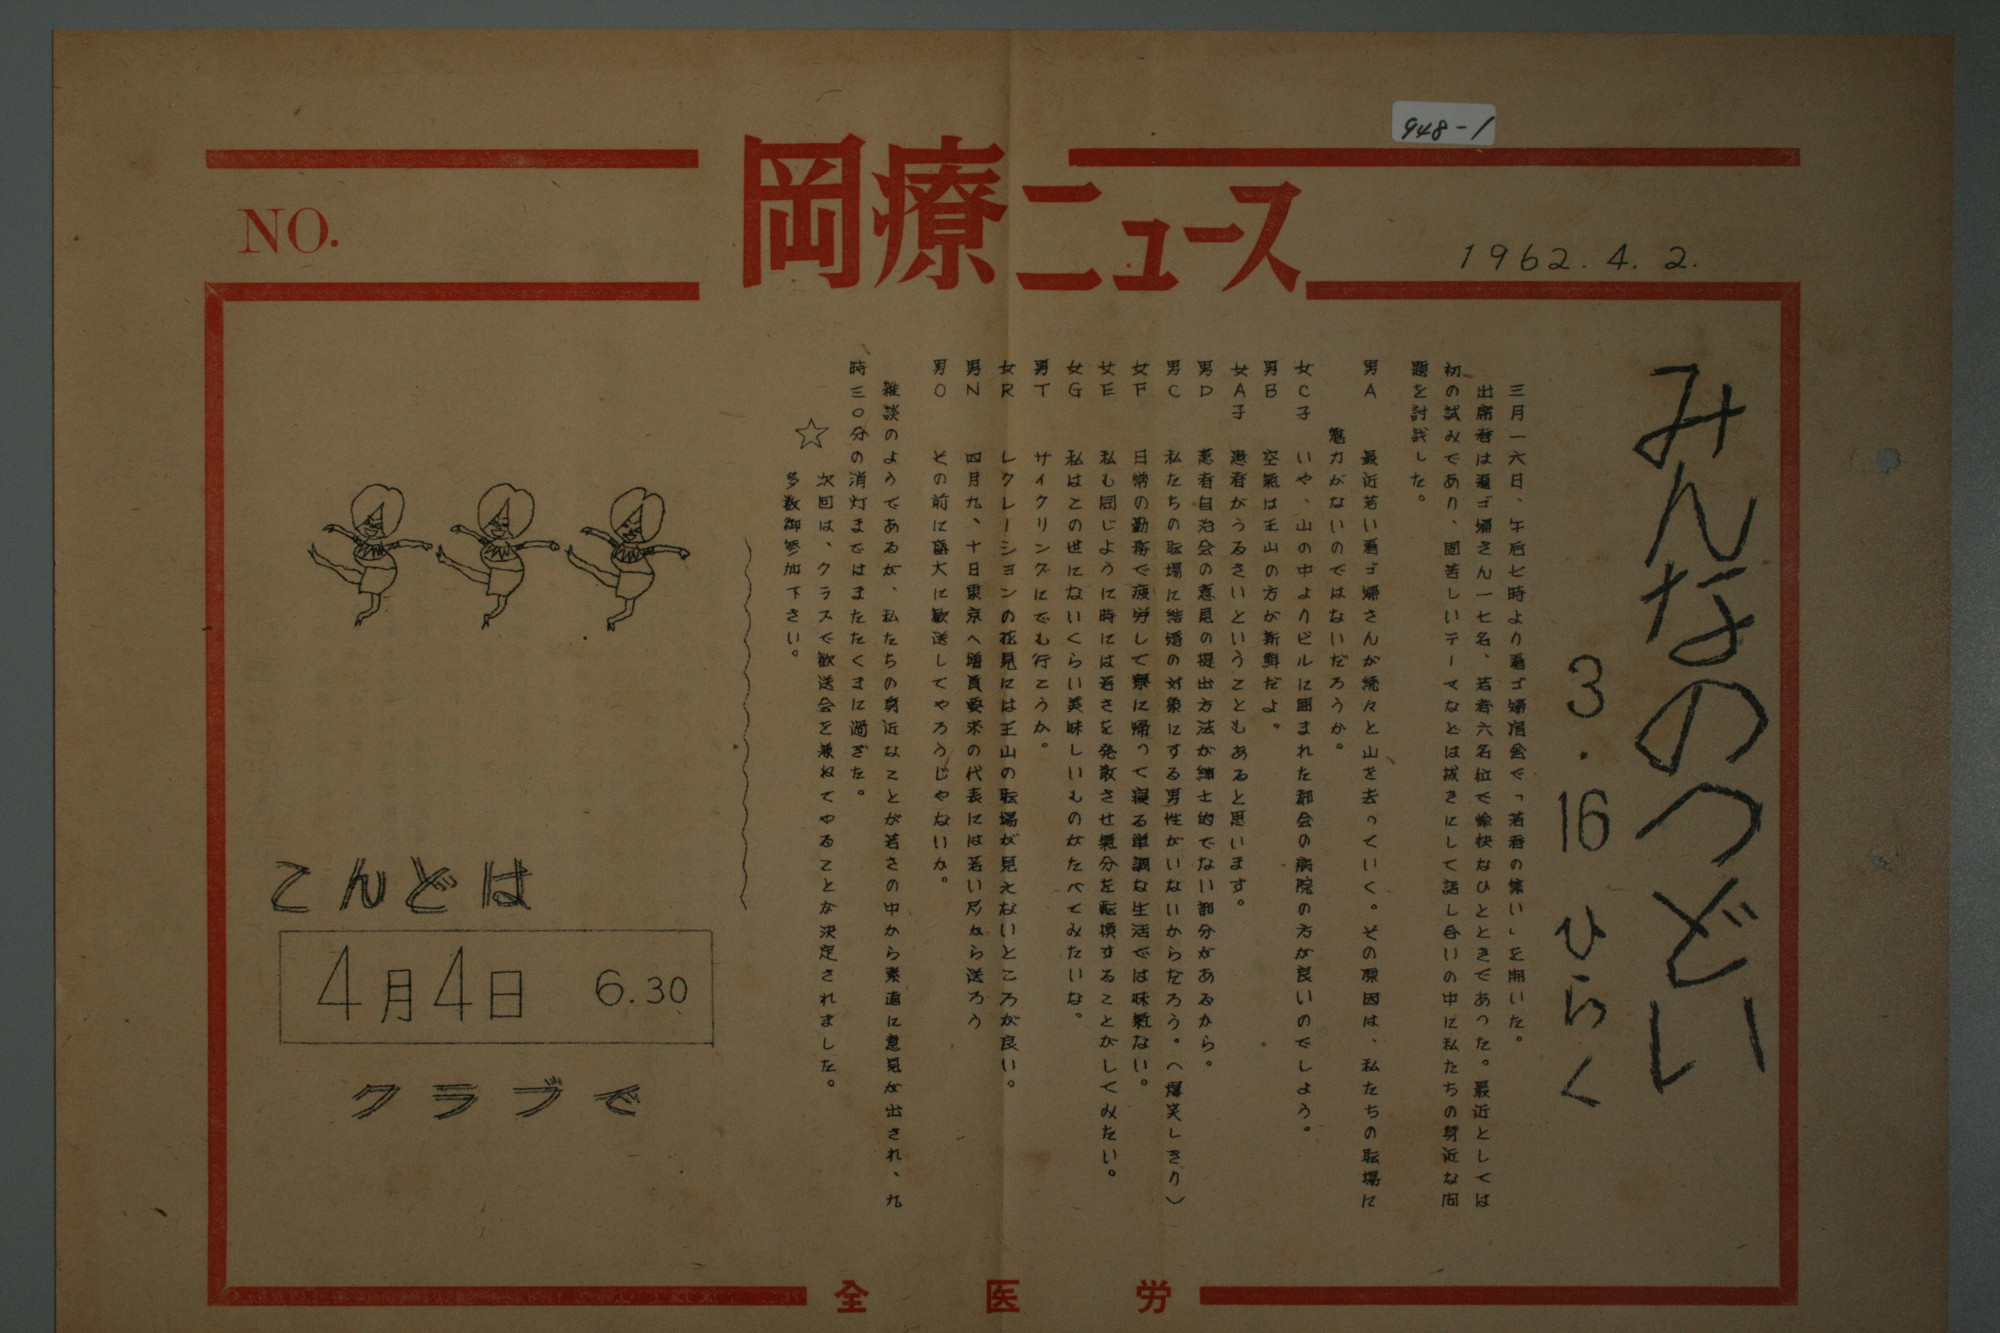 948-1
岡療ニュース
NO.
1962.4.2.
みんなのつどい
3.16 ひらく
三月一六日、午后七時より看ゴ婦宿舎で「若者の集い」を開いた。
出席者は看ゴ婦さん一七名、若者六名位で愉快なひとときであった。最近としては
初の試みであり、固苦しいテーマなどは抜きにして話し合いの中に私たちの身近な問
題を討議した。
男A 最近若い看ゴ婦さんが続々と山を去っていく。その原因は、私たちの転場に
魅力がないのではないだろうか。
女C子 いや、山の中よりビルに囲まれた都会の病院の方が良いのでしよう。
男B 空気は王山の方が新鮮だよ。
女A子 患者がうるさいということもあると思います。
男D 患者自治会の意見の提出方法が紳士的でない部分があるから。
男C 私たちの転場に結婚の対象にする男性がいないからだろう。(爆笑しきり)
女F 日常の勤務で疲労して寮に帰って寝る単調な生活では味気ない。
女E 私も同じように時には若さを発散させ気分を転換することがしてみたい。
女G 私はこの世にないくらい美味しいものがたべてみたいな。
男T サイクリングにでも行こうか。
女R レクレーションの花見には王山の転場が見えないところが良い。
男N 四月九、十日東京へ増員要求の代表には若い層から送ろう
男O その前に盛大に歓送してやろうじゃないか。
雑談のようであるが、私たちの身近なことが若さの中から素直に意見が出され、九
時三〇分の消灯まではまたたくまに過ぎた。
☆ 次回は、クラスで歓送会を兼ねてやることが決定されました。
多数御参加下さい。
こんどは
4月4日 6.30
クラブで
全医労